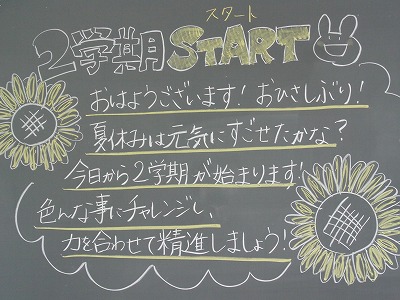 スタート
2学期 START
おはようございます! おひさしぶり!
夏休みは元気にすごせたかな?
今日から2学期が始まります!
色んな事にチャレンジし、
力を合わせて精進しましょう!